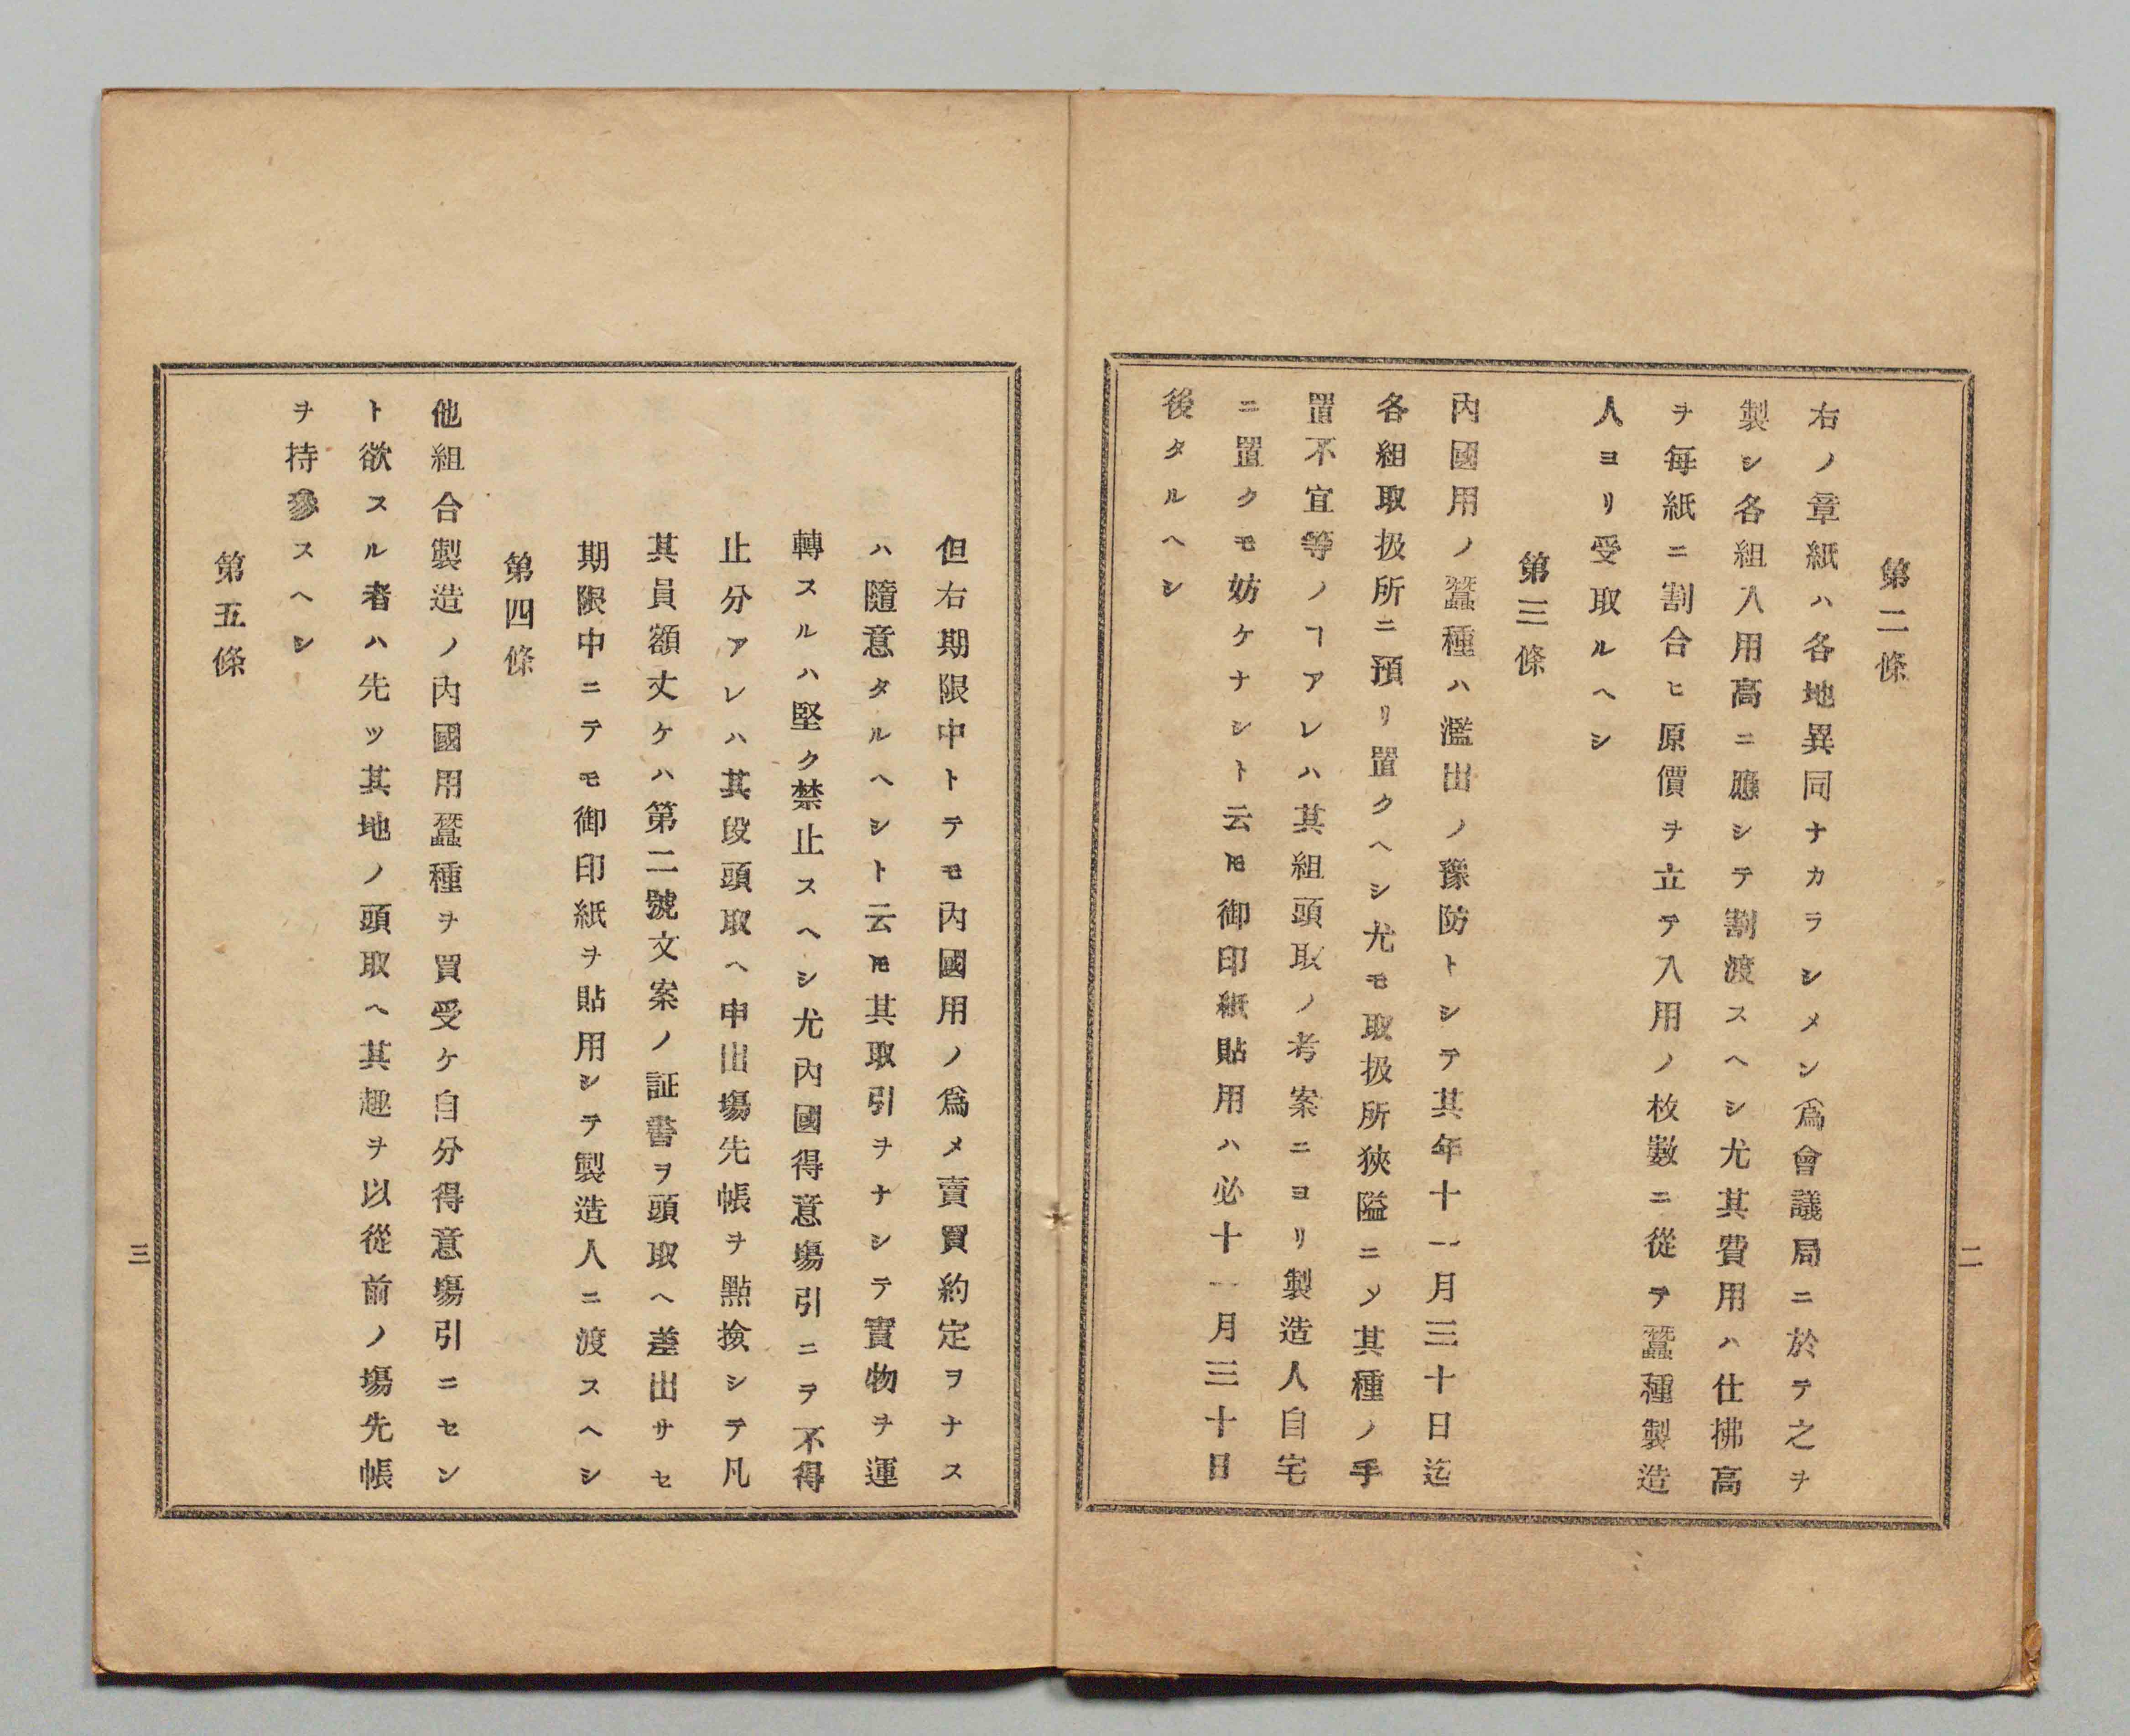 第二條
右ノ章紙ハ各地異同ナカラシメン爲會議局ニ於テ之ヲ
製シ各組入用高ニ應シテ割渡スヘシ尤其費用ハ仕拂高
ヲ毎紙ニ割合ヒ原價ヲ立テ入用ノ枚數ニ從テ蠶種製造
人ヨリ受取ルヘシ
第三條
内國用ノ蠶種ハ濫出ノ豫防トシテ其年十一月三十日迄
各組取扱所ニ預リ置クヘシ尤モ取扱所狹隘ニメ其種ノ手
置不宜等ノヿアレハ其組頭取ノ考案ニヨリ製造人自宅
ニ置クモ妨ケナシト云𪜈御印紙貼用ハ必十一月三十日
後タルヘシ
二
但右期限中トテモ内國用ノ爲メ賣買約定ヲナス
ハ隨意タルヘシト云𪜈其取引ヲナシテ實物ヲ運
轉スルハ堅ク禁止スヘシ尤内國得意塲引ニヲ不得
止分アレハ其段頭取ヘ申出塲先帳ヲ點撿シテ凡
其員額丈ケハ第二號文案ノ証書ヲ頭取ヘ差出サセ
期限中ニテモ御印紙ヲ貼用シテ製造人ニ渡スヘシ
第四條
他組合製造ノ内國用蠶種ヲ買受ケ自分得意塲引ニセン
ト欲スル者ハ先ツ其地ノ頭取ヘ其趣ヲ以從前ノ塲先帳
ヲ持參スヘシ
第五條
三